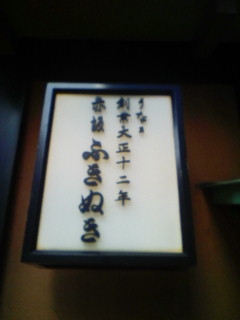 うなぎ
創業大正十二年
赤坂ふきぬき